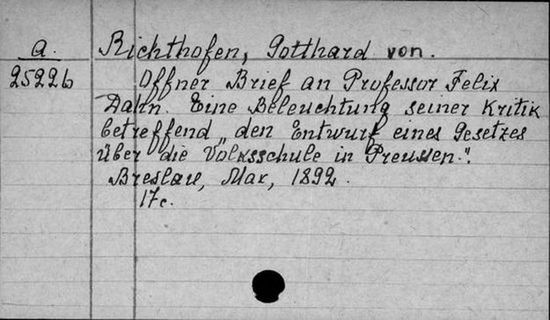 a.
25226
Richthofen, Gotthard von.
Offner Brief an Professor Felix
Dahn. Eine Beleuchtung seiner Kritik
betreffend „den Entwurf eines Gesetzes
über die Volksschule in Preussen".
Breslau, Max, 1892.
17c.